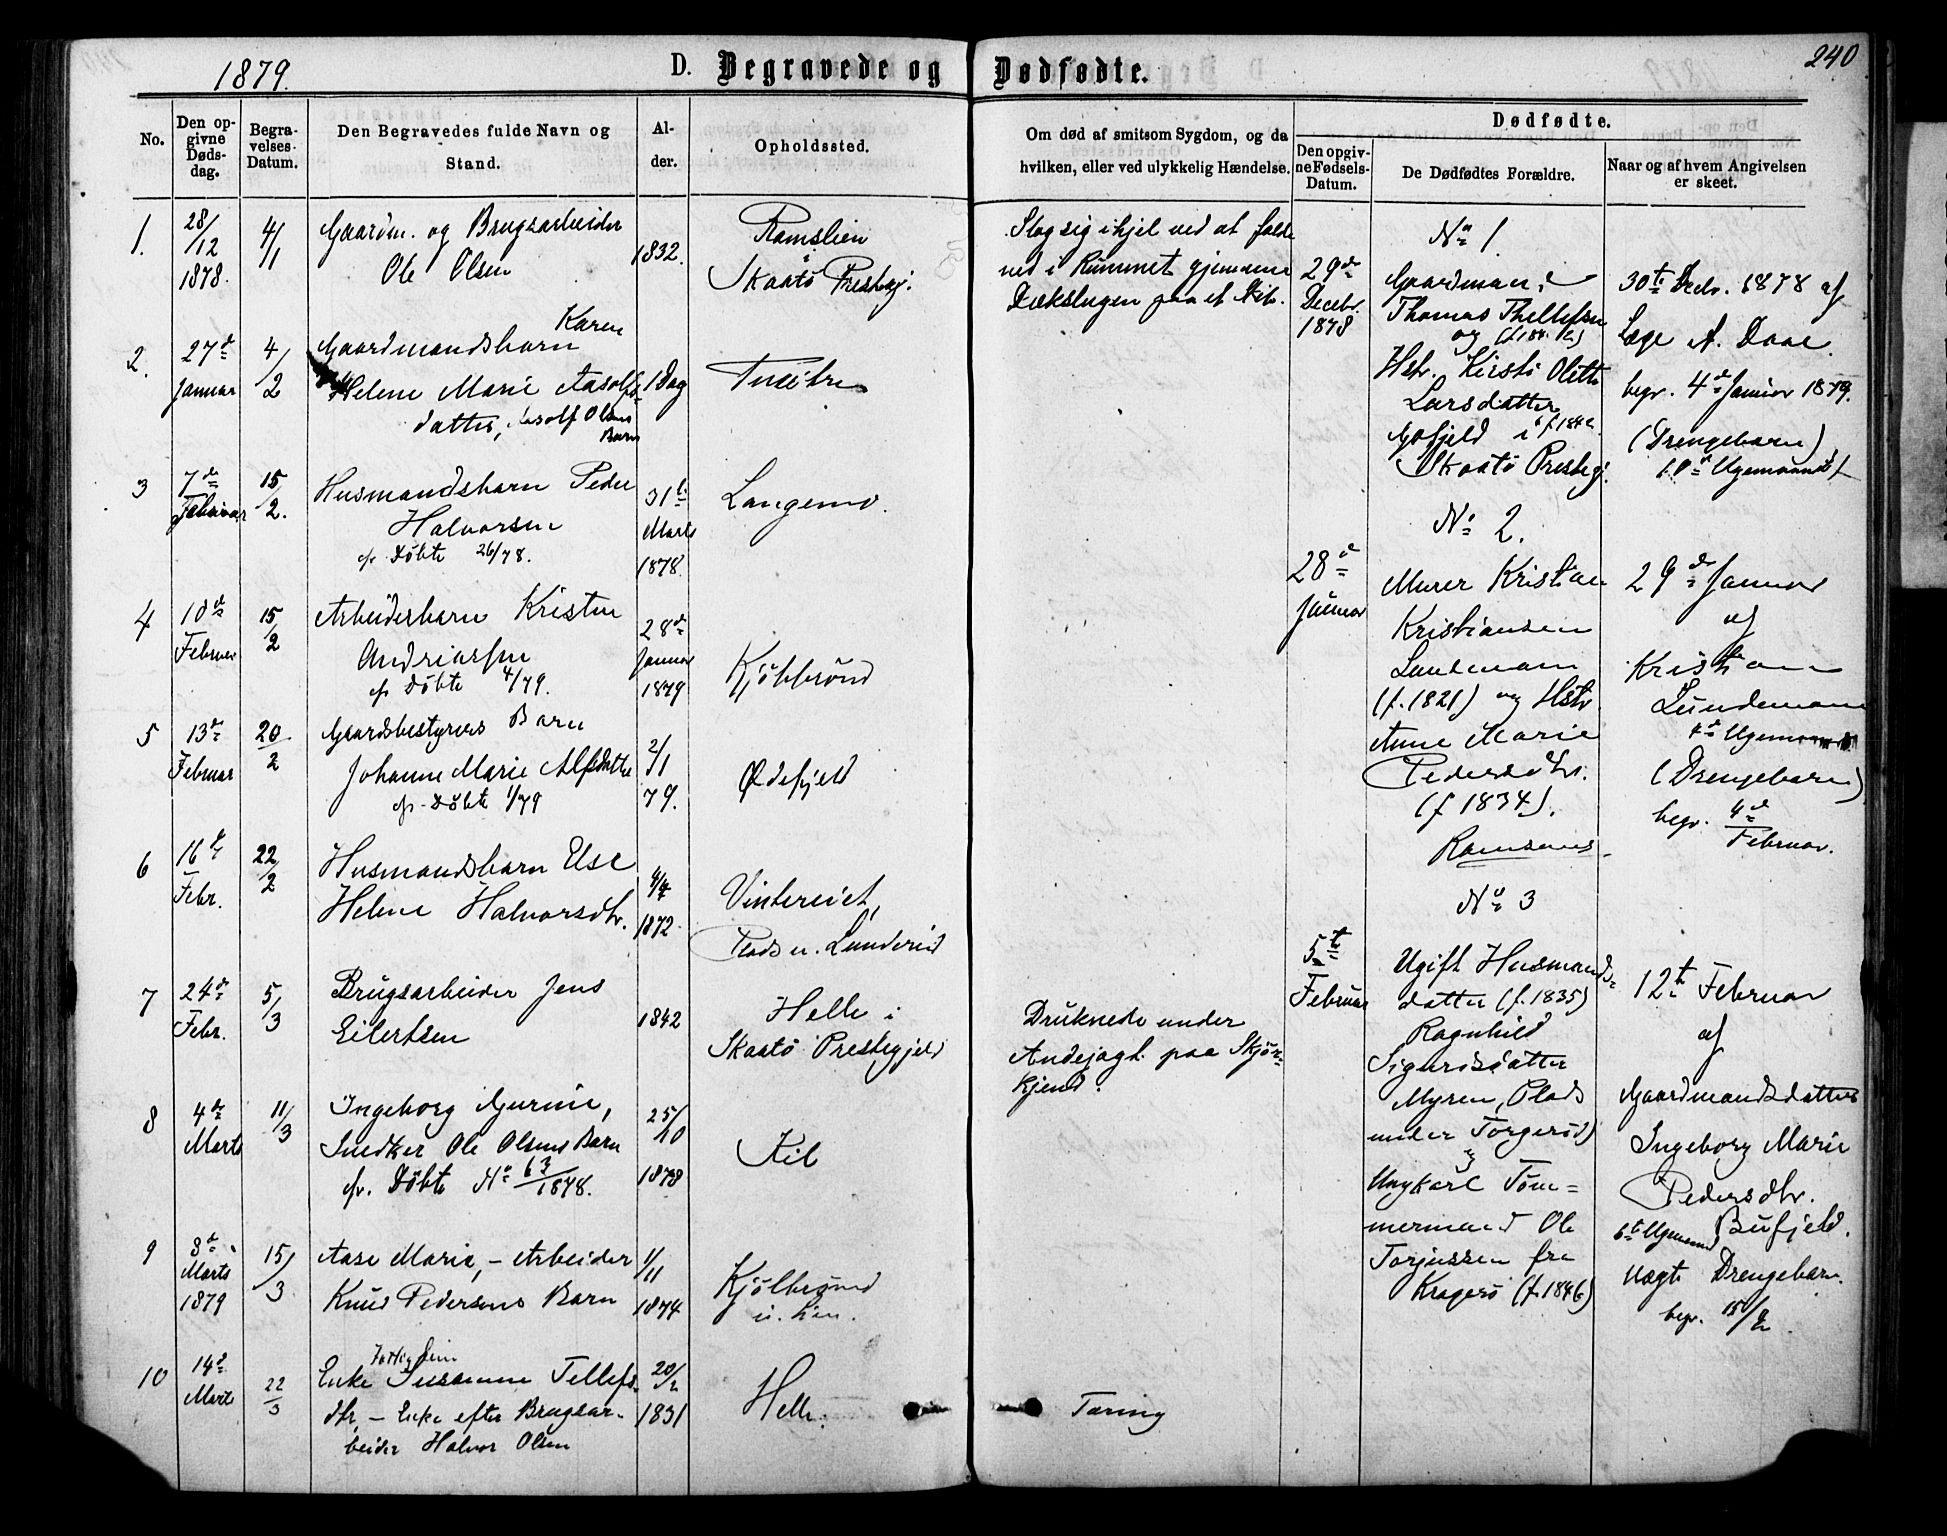 1879.
D. Begravede og Dødfødte.
240
No.
Den op-
givne
Døds-
dag.
Begra-
velses-
Datum.
Den Begravedes fulde Navn og
Stand.
Al-
der.
Opholdssted.
Om død af smitsom Sygdom, og da
hvilken, eller ved ulykkelig Hændelse.
Dødfødte.
Den opgiv-
ne Fødsels-
Datum.
De Dødfødtes Forældre.
Naar og af hvem Angivelsen
er skeet.
1. 28/12 1878. 4/1
Gaardm. og Brugsarbeider
Ole Olsen
1832.
Ramslien
i
Skaatö Prestegj.
Slog sig ihjel ved at falde
ned i Rummet gjennem
Dækslugen paa et Skib.
2. 27de Januar 4/2
Karen
Gaardmandsbarn
Helene Marie Aasolfs-
datter, Aasolf Olsens
Barn
1 Dag
3 7de Februar 15/2.
Husmandsbarn Peder
Halvorsen
cfr. Döbte 26/78.
31te
Marts
1878.
Langemo.
4 10de Februar 15/2
Arbeiderbarn Kristen
Andriassen
cfr. Döbte 4/79.
28de
Januar
1879
Kjölbrönd
5 13de Februar 20/2
Gaardsbestyrers Barn
Johanne Marie Alfsdatter
cfr. Döbte 1/79
2/1
79.
Ødefjeld
6 16de Febr. 22/2
Husmandsbarn Else
Helene Halvorsdtr.
4/4
1872.
Vintereiet,
Plads u. Lundereid
7 24de Febr. 5/3
Brugsarbeider Jens
Eilertsen
1842
Helle i
Skaatö Prestegjeld
Druknede under
Andejagt paa Skjön-
kjend.
8 4de Marts 11/3
Ingeborg Gurine,
Snedker Ole Olsens Barn
cfr. Döbte No 63/1878.
25/10
1878
Kil
9 8de Marts 1879 15/3
Aase Marie, – Arbeider
Knud Pedersens Barn
1/11
1874
Kjölbrönd
10 14de Marts 22/3
Enke Susanne Tellefs-
dtr, – Enke efter Brugsar-
beider Halvor Olsen
20/2
1831
Helle.
Tæring
No 1
29de
Decebr.
1878
Gaardmand
Thomas Thellefsen
og
Hstr. Kirsti Olette
Larsdatter
Gofjeld i f. 1842.
Skaatö Prestegj.
30te Decbr. 1878 af
Læge A. Daae.
begr. 4de Januar 1879.
(Drengebarn)
No 2.
28de
Januar
Murer Kristian
Kristiansen
Lundemann
(f. 1821) og Hstr.
Anne Marie
Pedersdtr.
(f 1834).
29de Januar
af
Kristian
Lundemann
(Drengebarn)
begr. 4de
Februar.
No 3
5te
Februar
Ugift Husmands-
datter (f. 1835)
Ragnhild
Sigurdsdatter
Myren, Plads
under Torgersö)
og
Ungkarl Töm-
mermand Ole
Torjussen fra
Kragerö (f. 1846)
12te Februar
af
Gaardmandsdatter
Ingeborg Marie
Pedersdtr.
Bufjeld.
Uægte Drengebarn.
begr. 15/2.